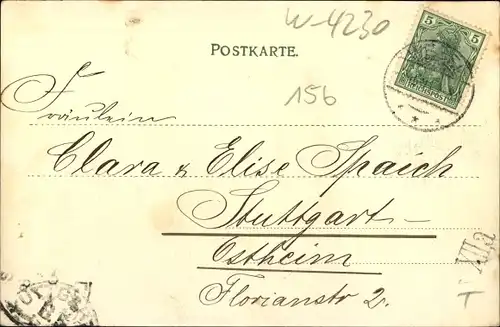 W-4230
5
5
POSTKARTE.
REICHSPOST
156
Fräulein
Clara & Elise Spaich
Stuttgart-
Ostheim
Florianstr 2.
XIIa
T